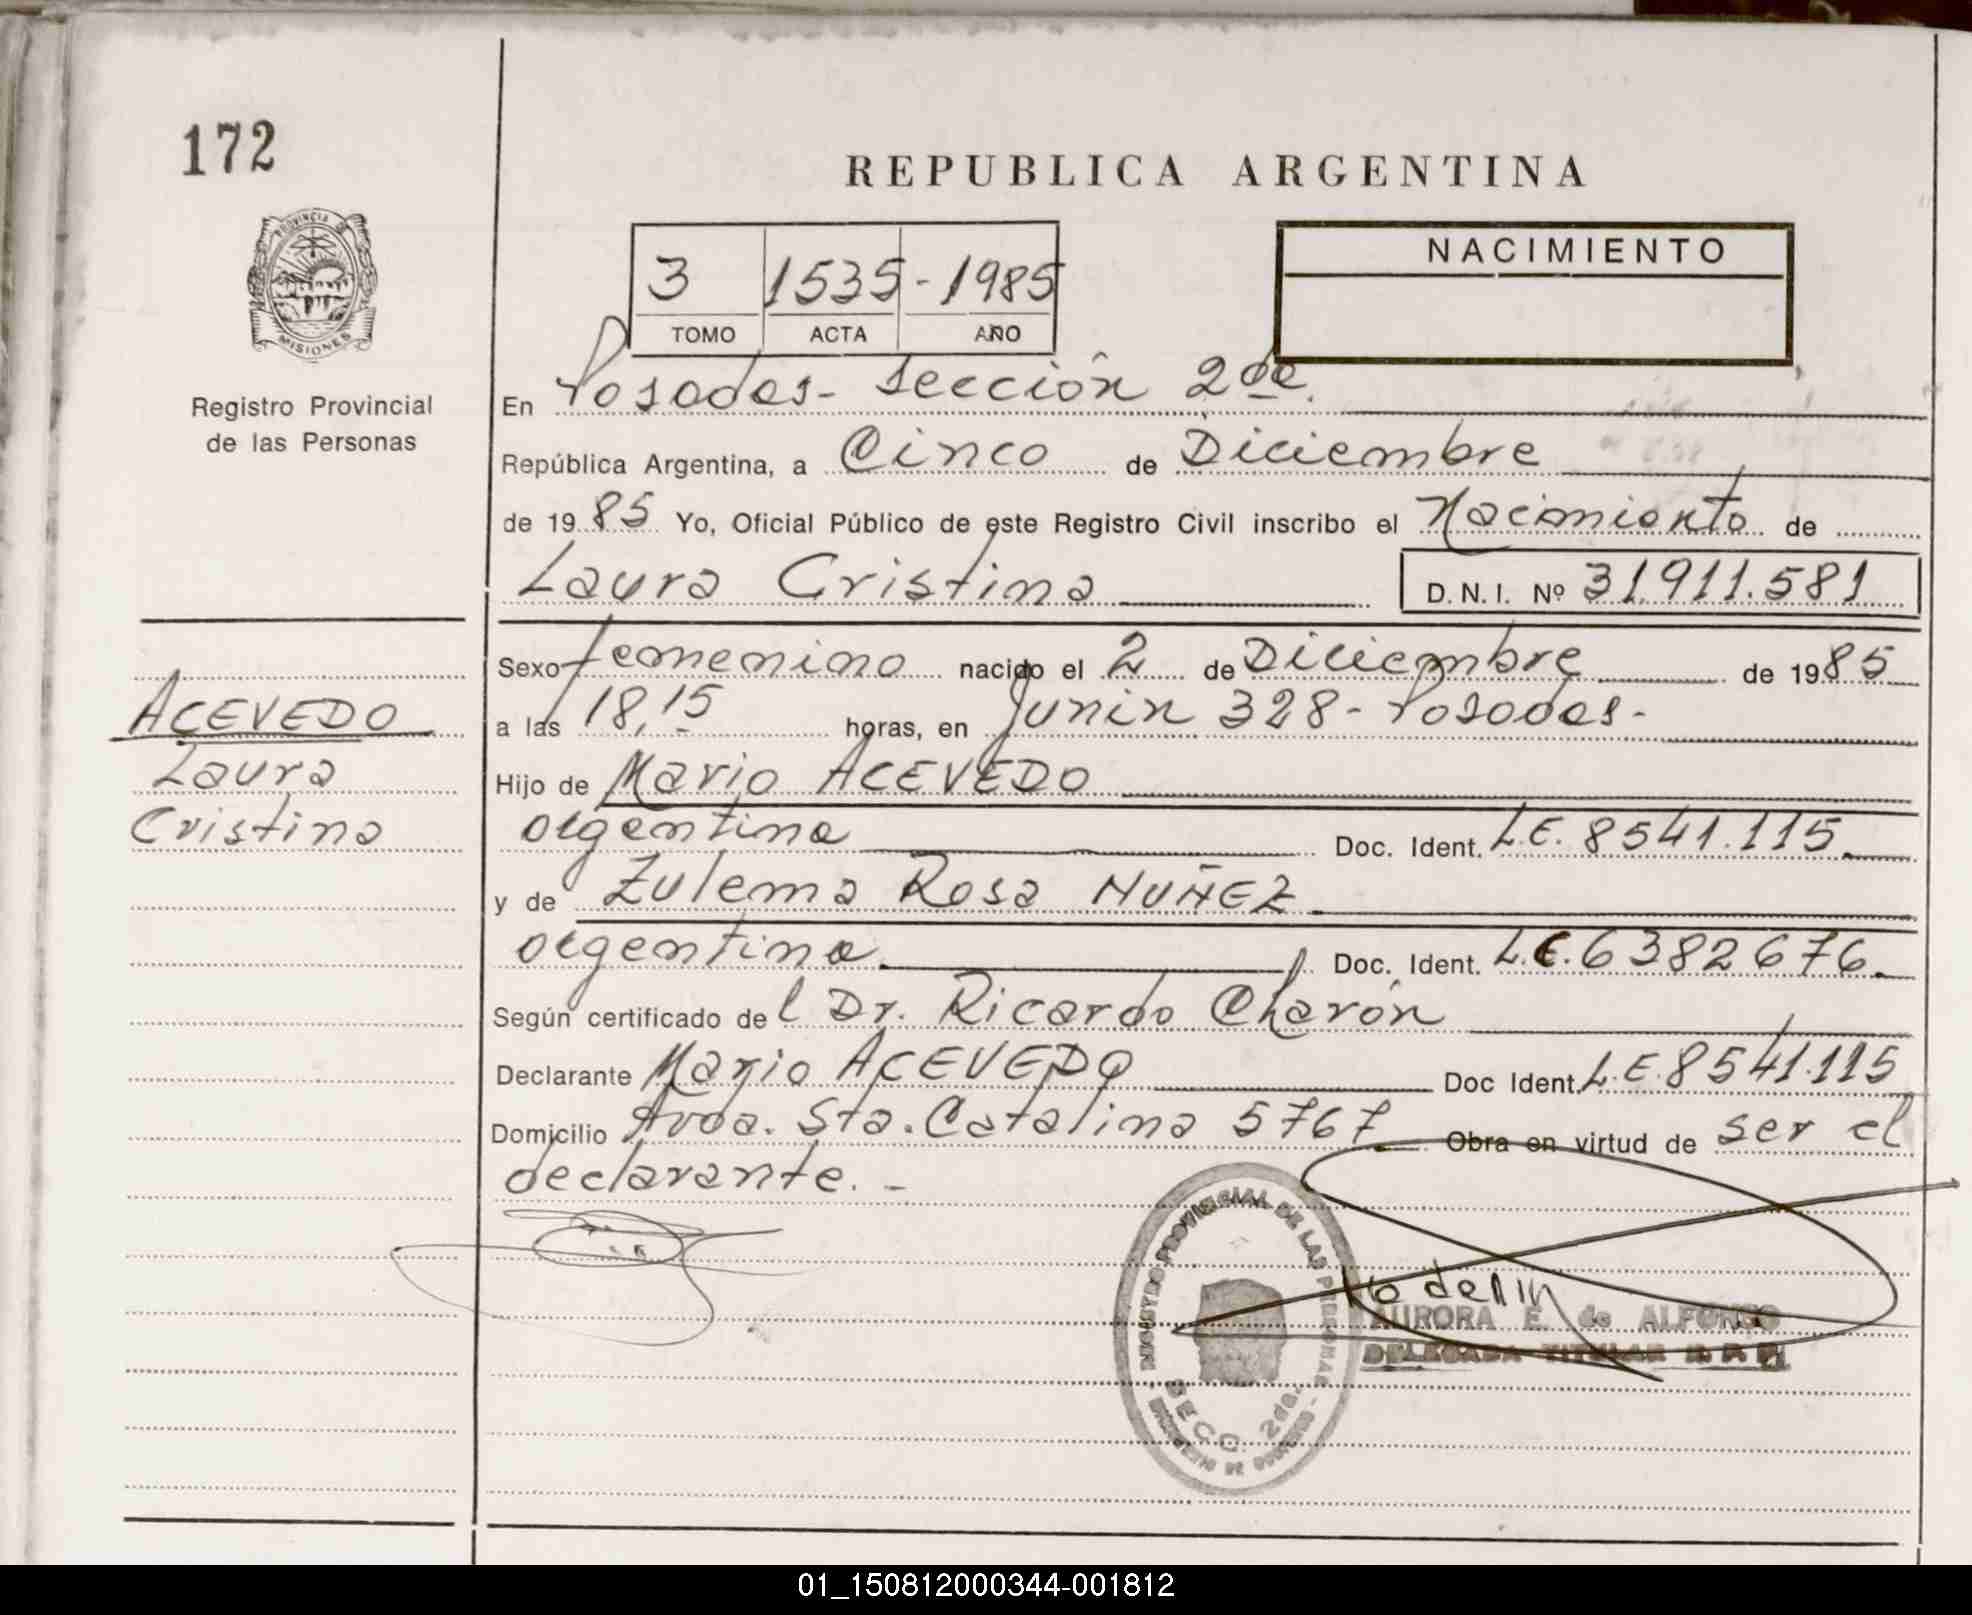 172
REPUBLICA ARGENTINA
PROVINCIA DE
MISIONES
Registro Provincial
de las Personas
3 1535 - 1985
TOMO ACTA AÑO
NACIMIENTO
En Posadas - Sección 2da.
República Argentina, a Cinco de Diciembre
de 1985 Yo, Oficial Público de este Registro Civil inscribo el Nacimiento de
Laura Cristina D.N.I. Nº 31.911.581
Sexo femenino nacido el 2 de Diciembre de 1985
a las 18,15 horas, en Junín 328 - Posadas -
Hijo de Mario ACEVEDO
argentina Doc. Ident. L.E. 8541.115.
y de Zulema Rosa NUÑEZ
argentina Doc. Ident. L.C. 6382676.
Según certificado del Dr. Ricardo Charón
Declarante Mario ACEVEDO Doc Ident. L.E. 8541.115
Domicilio Avda. Sta. Catalina 5767 Obra en virtud de ser el
declarante. -
ACEVEDO
Laura
Cristina
REGISTRO PROVINCIAL DE LAS PERSONAS
SECC. 2da.
MINISTERIO DE GOBIERNO
AURORA E. de ALFONSO
DELEGADA TITULAR R. P. P.
01_150812000344-001812